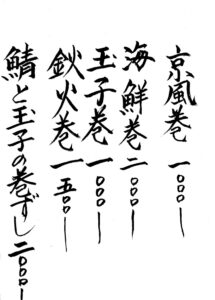 京風巻 一〇〇〇ー
海鮮巻 二〇〇〇ー
玉子巻 一〇〇〇ー
鉄火巻 一五〇〇ー
鯖と玉子の巻ずし 二〇〇〇ー